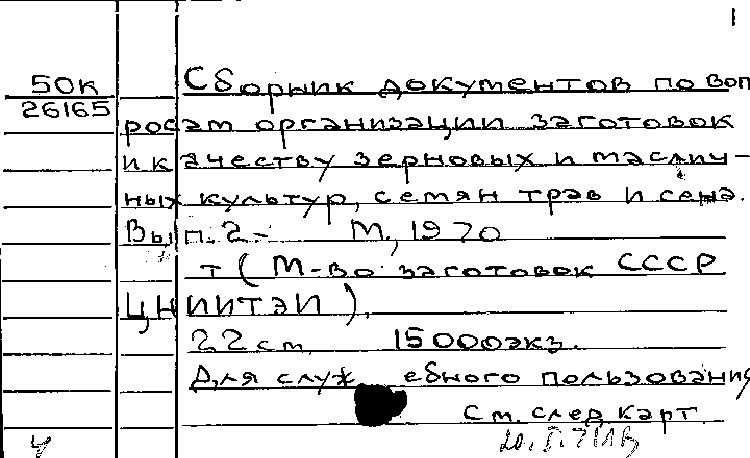 1
50к
26165
Сборник документов по воп
росам организации заготовок
и качеству зерновых и маслич-
ных культур, семян трав и сена.
Вып. 2.- М., 1970
т ( М-во заготовок СССР
ЦНИИТЭИ ).
22 см 15000 экз.
Для служебного пользования
См. след карт.